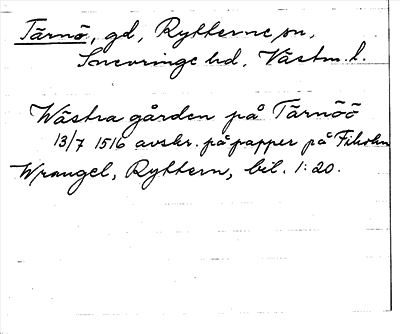 Tärnö, gd, Rytterne sn,
Snevringe hd, Västm. l.
Wästra gården på Tärnöö
13/7 1516 avskr. på papper på Fiholm
Wrangel, Ryttern, bil. 1:20.